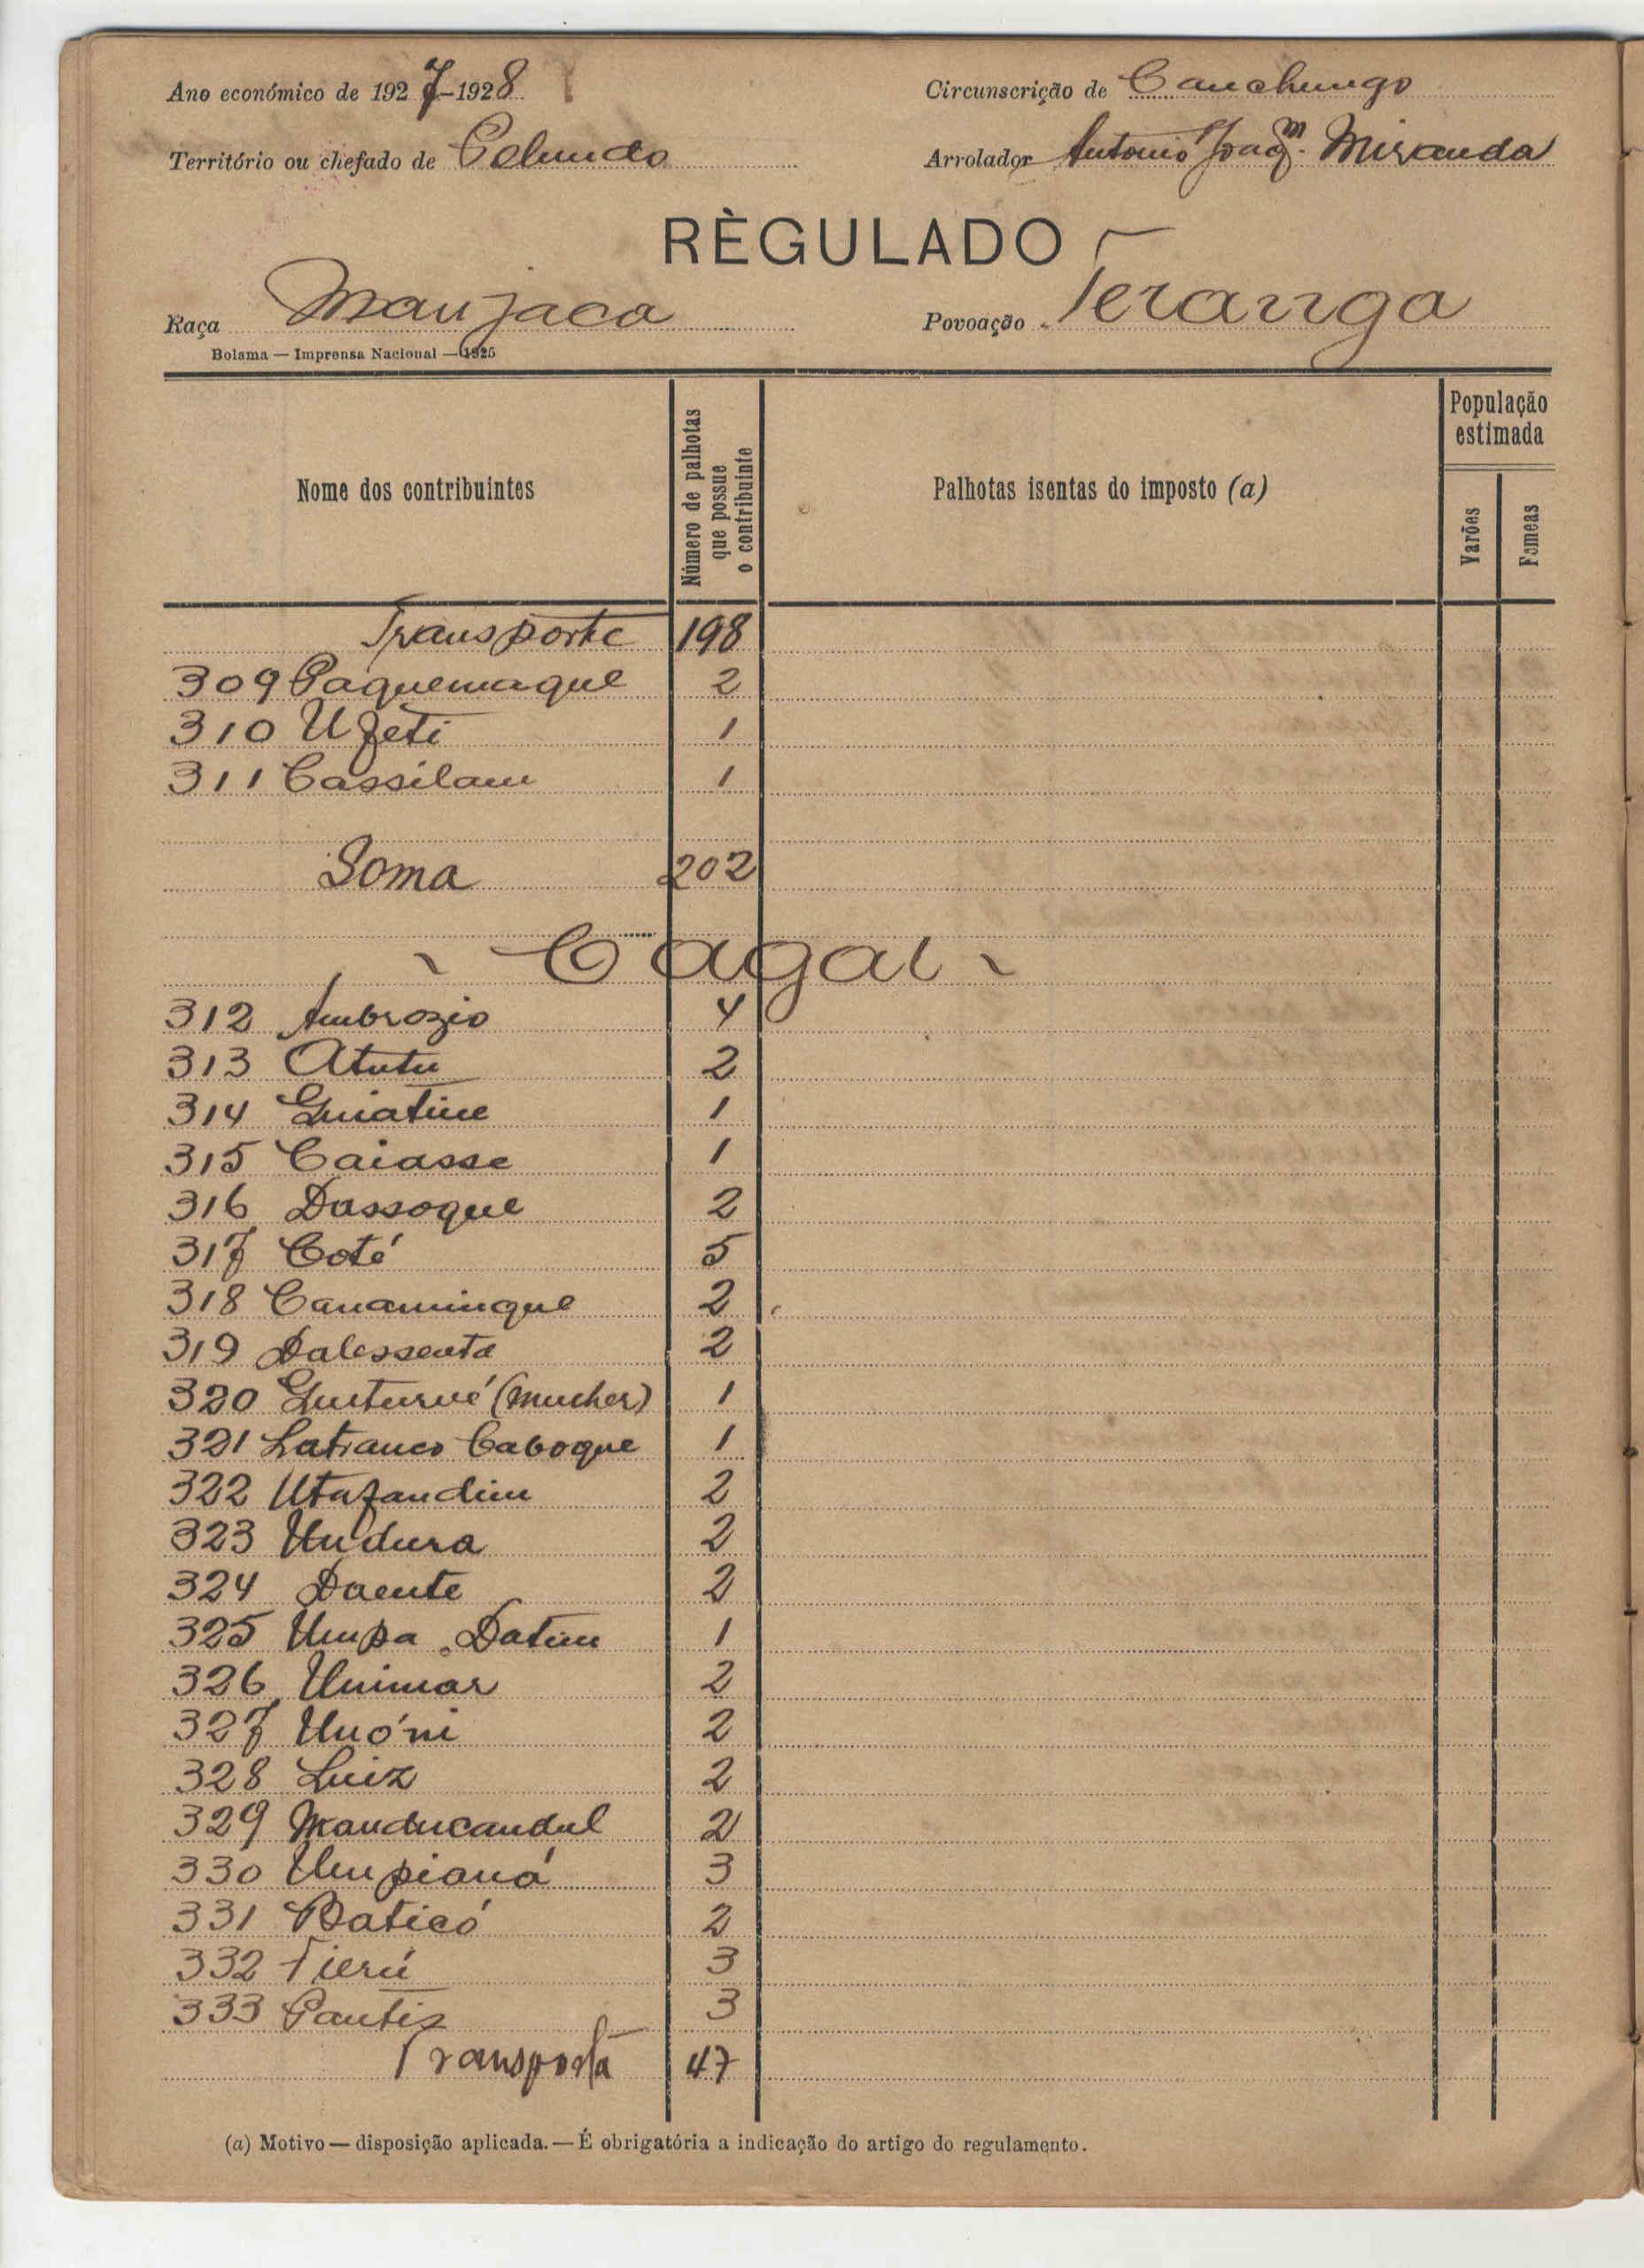 Ano económico de 1927-1928
Circunscrição de Canchungo
Território ou chefado de Pelundo
Arrolador Antonio Joaqm. Miranda
RÈGULADO
Raça Manjaca
Povoação Teranga
Bolama — Imprensa Nacional — 1925
Nome dos contribuintes
Número de palhotas que possue o contribuinte
Palhotas isentas do imposto (a)
População estimada
Varões
Femeas
Transporte 198
309 Paquemaque 2
310 Ufeti 1
311 Cassilam 1
Soma 202
Cagai
312 Ambrozio 4
313 Atutu 2
314 Guiatine 1
315 Caiasse 1
316 Dassoque 2
317 Coté 5
318 Canaminque 2
319 Dalessenta 2
320 (mulher) 1
321 Latranco Caboque 1
322 Utafandim 2
323 Undura 2
324 Daente 2
325 Umpa Datim 1
326 Unimar 2
327 Unóni 2
328 Luiz 2
329 Manducandul 2
330 Umpianá 3
331 Baticó 2
332 Tierú 3
333 Pantis 3
Transporta 47
(a) Motivo — disposição aplicada. — É obrigatória a indicação do artigo do regulamento.